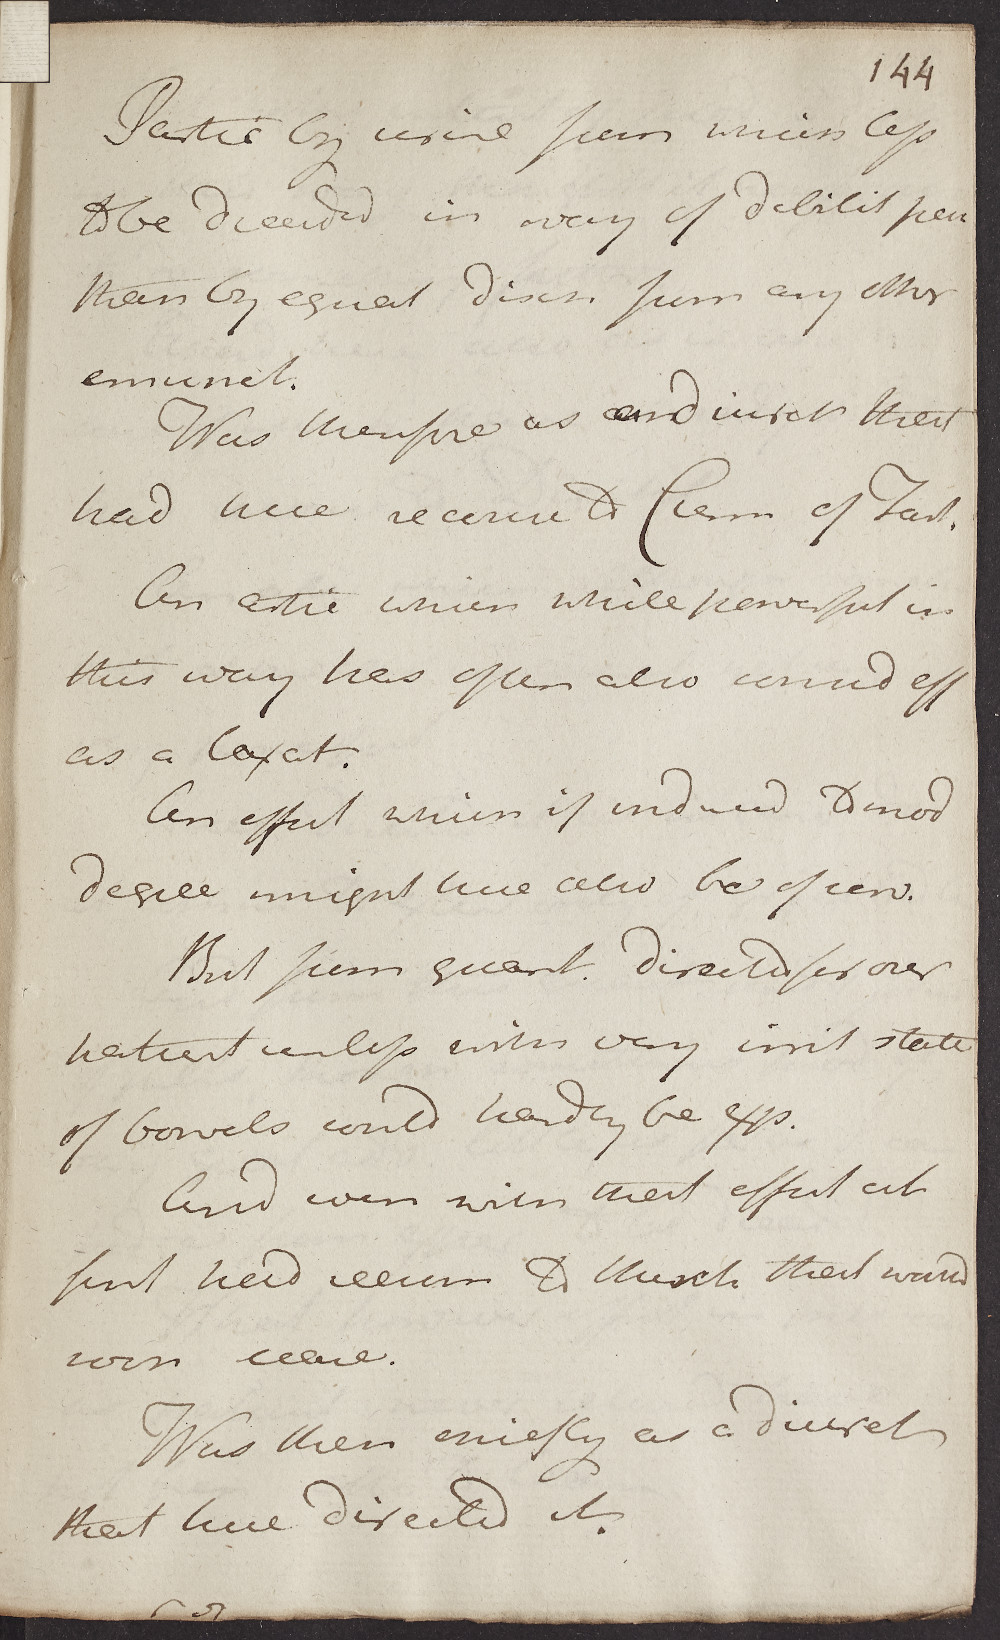 144
Partic by urine from which less
to be dreaded in way of debilit pow
than by equal disch from any other
emunct.
Was therefore as a diuret that
had here recourse to Crem of Tart.
An artic which while powerful in
this way has often also consid eff
as a laxat.
An effect which if induced to mod
degree might here also be of serv.
But from quant. directed for over
hatient unless with very irrit state
of bowels could hardly be exp.
And even with that effect at
first had reason to think that would
soon cease.
Was then chiefly as a diuret
that here directed it.